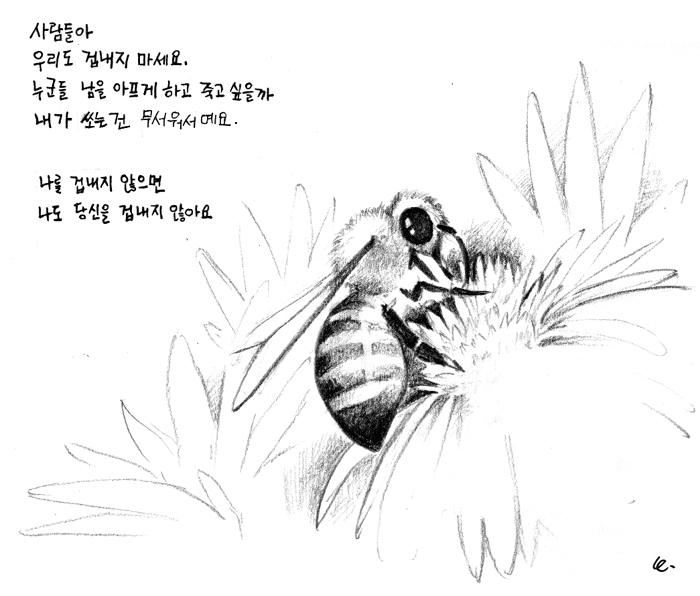 사람들아
우리도 겁내지 마세요.
누군들 남을 아프게 하고 죽고 싶을까
내가 쏘는건 무서워서예요.
나를 겁내지 않으면
나도 당신을 겁내지 않아요